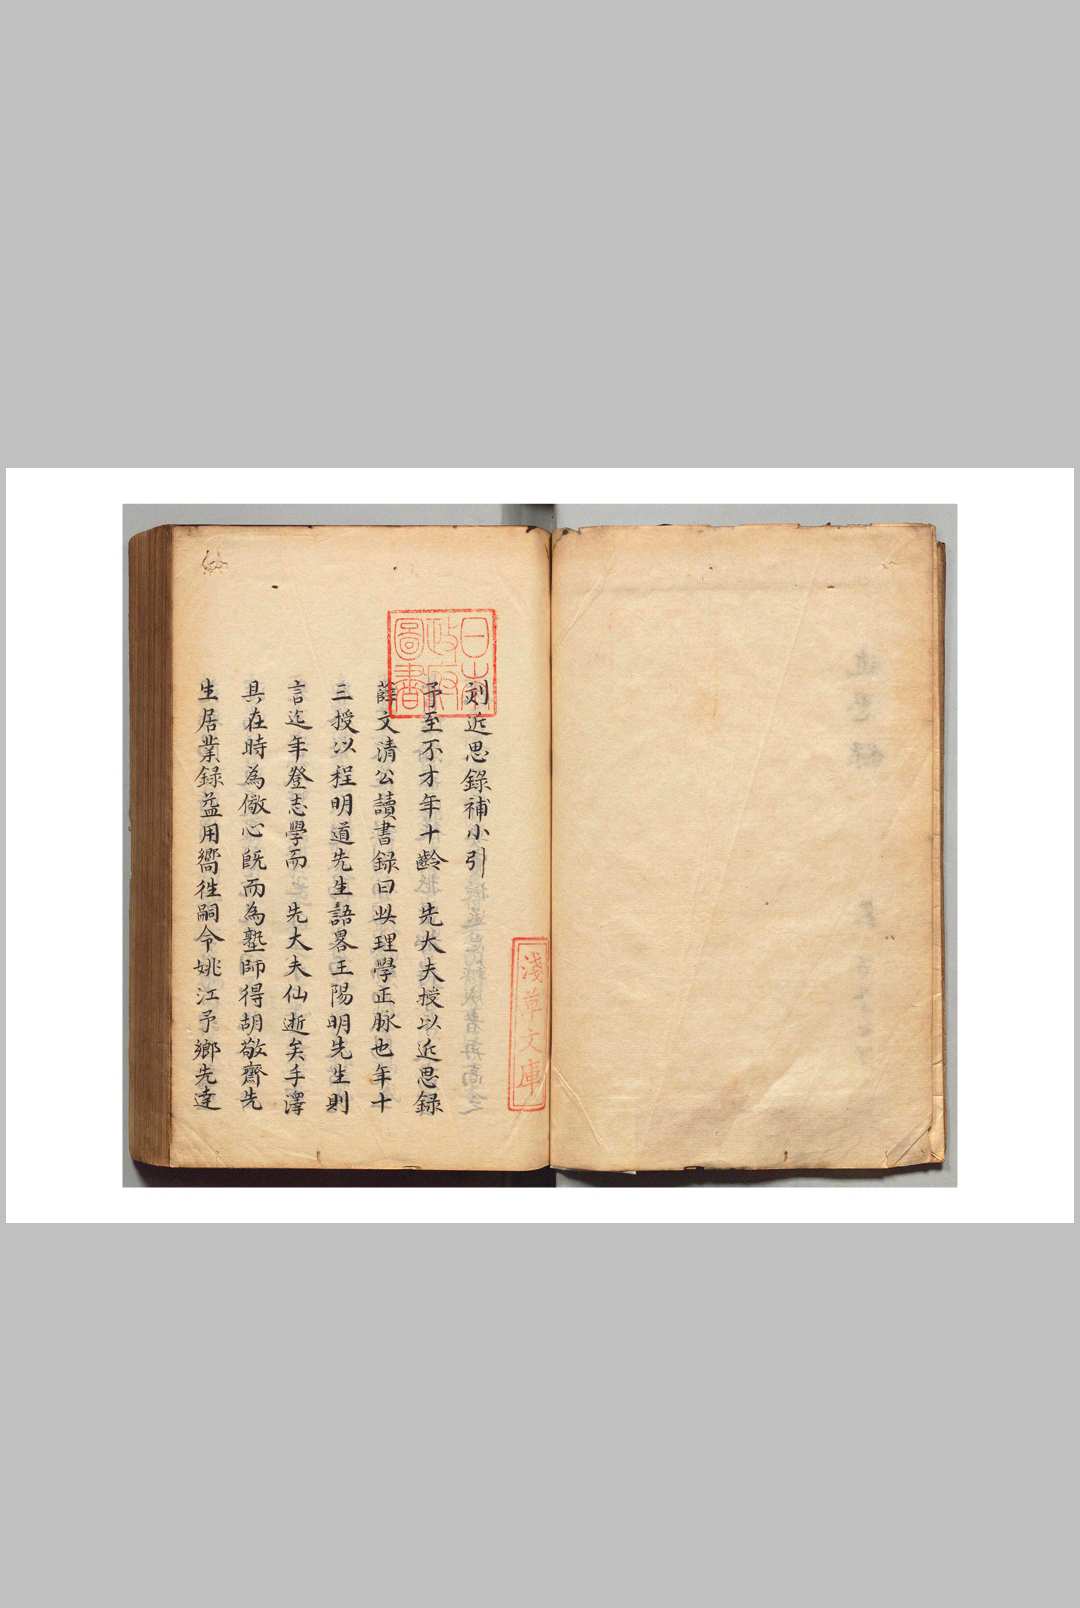 刻近思錄補小引
予至不才年十齡先大夫授以近思録
薛文清公讀書録曰此理學正脉也年十
三授以程明道先生語畧王陽明先生則
言迄年登志學而先大夫仙逝矣手澤
具在時為儆心既而為塾師得胡敬齋先
生居業録益用嚮徃嗣令姚江予鄉先達
日本
政府
圖書
淺草文庫